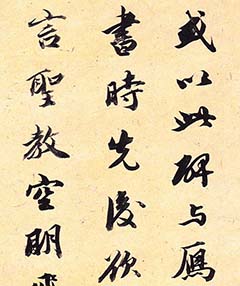 或以此碑与雁
書時先後欲
言聖教空明